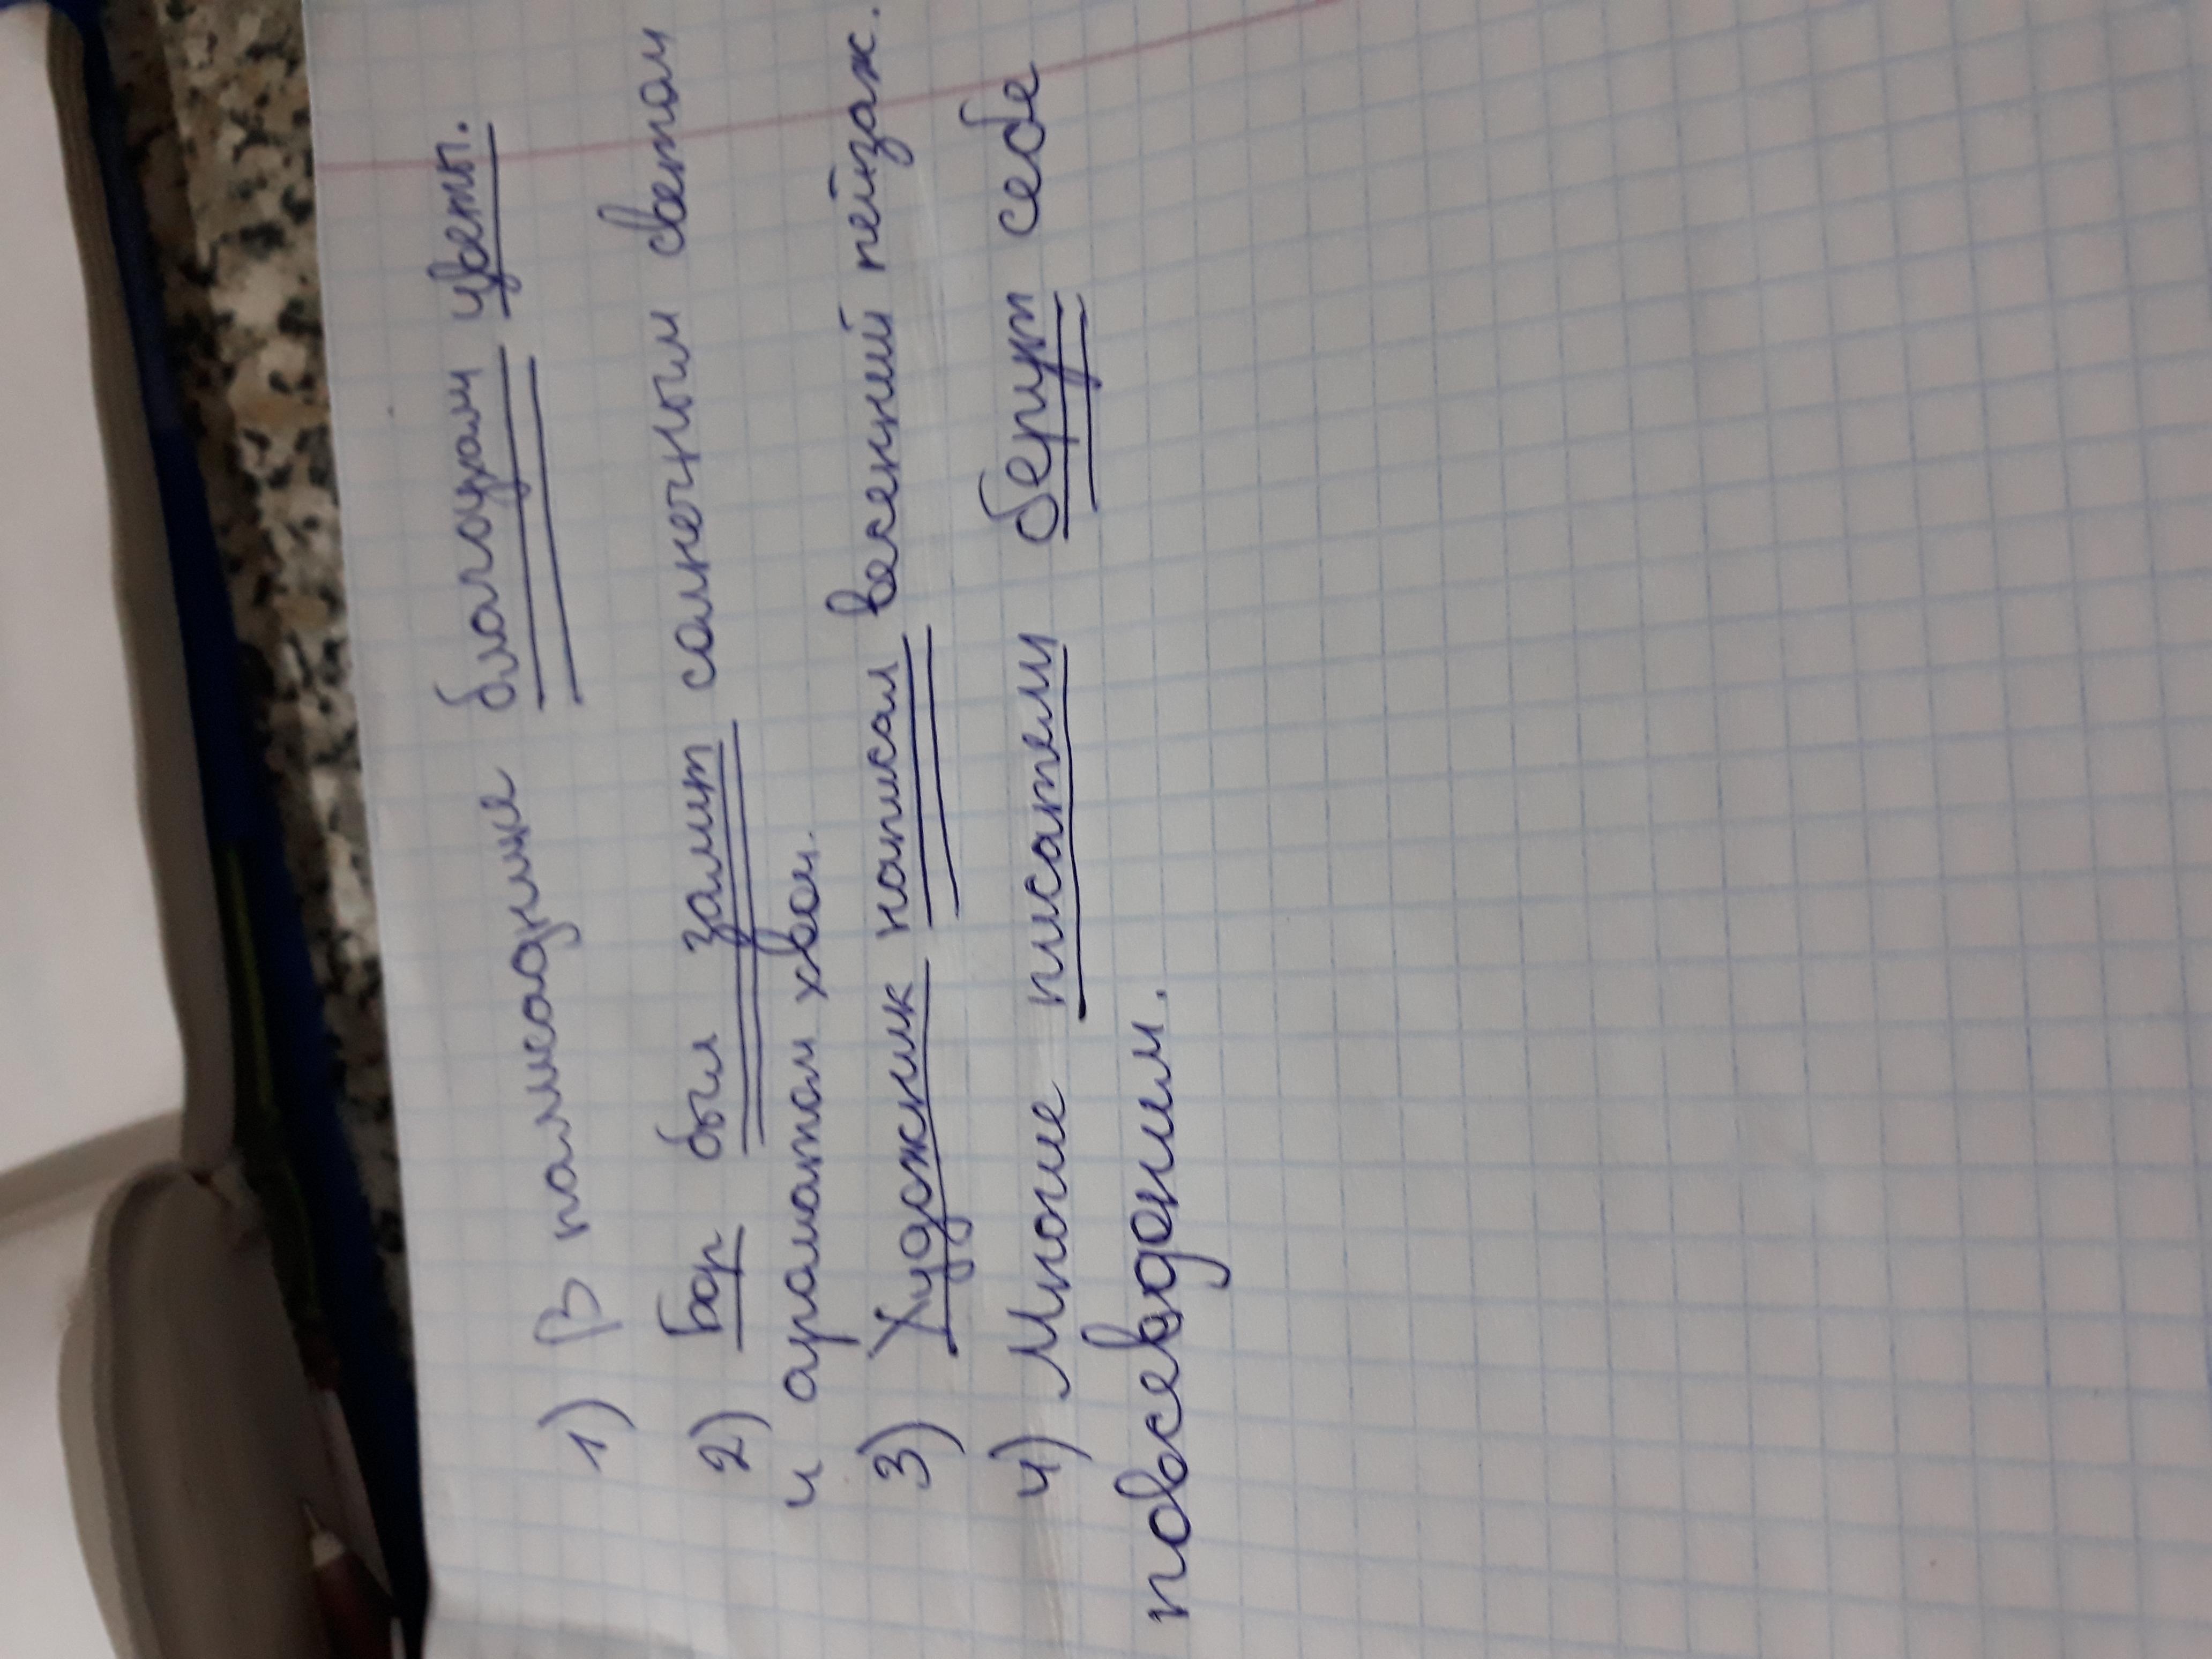 1) В полисаднике благоухали цветы.
2) Бор был залит солнечным светом
и ароматом хвои.
3) Художник написал весенний пейзаж.
4) Многие писатели берут себе
повсевдоним.